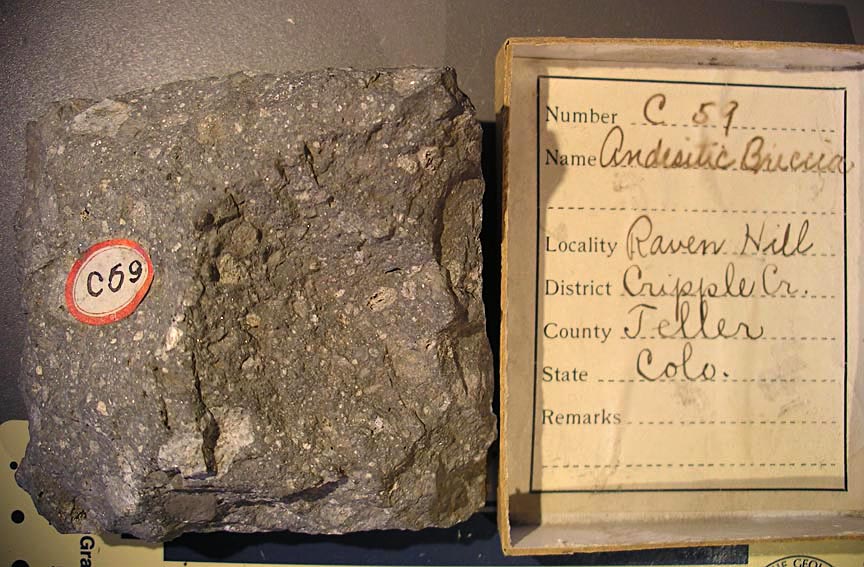 C59
Number C 59
Name Andesitic Breccia
Locality Raven Hill
District Cripple Cr.
County Teller
State Colo.
Remarks
Gra
HE GEOL